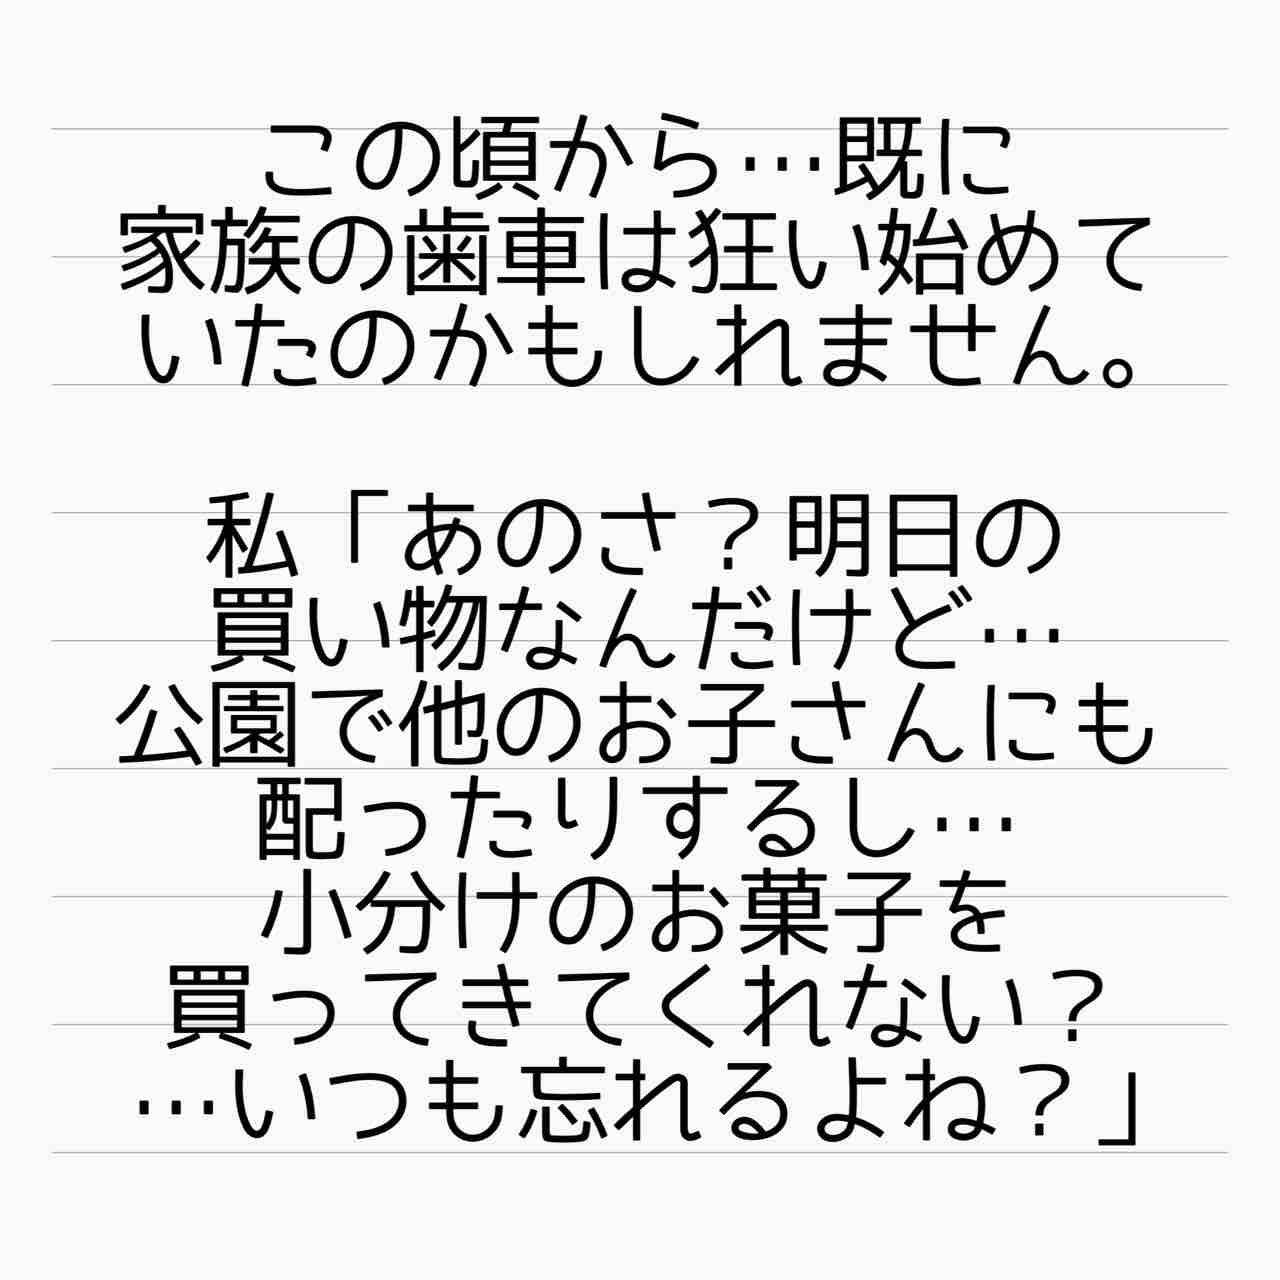 この頃から…既に
家族の歯車は狂い始めて
いたのかもしれません。
私「あのさ？明日の
買い物なんだけど…
公園で他のお子さんにも
配ったりするし…
小分けのお菓子を
買ってきてくれない？
…いつも忘れるよね？」